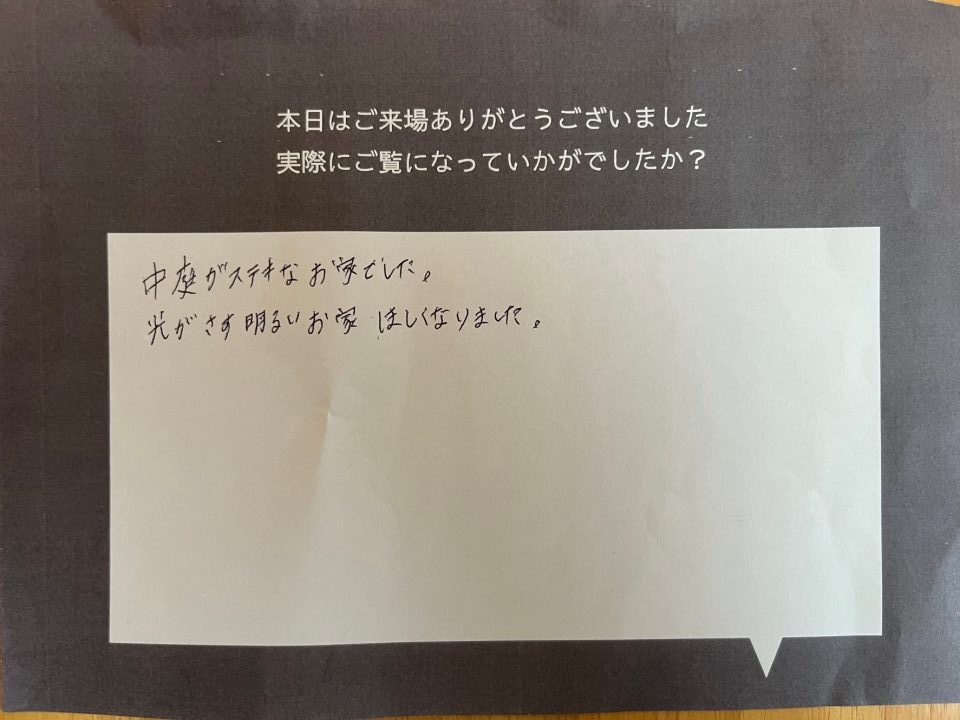 本日はご来場ありがとうございました
実際にご覧になっていかがでしたか？
中庭がステキなお家でした。
光がさす明るいお家ほしくなりました。